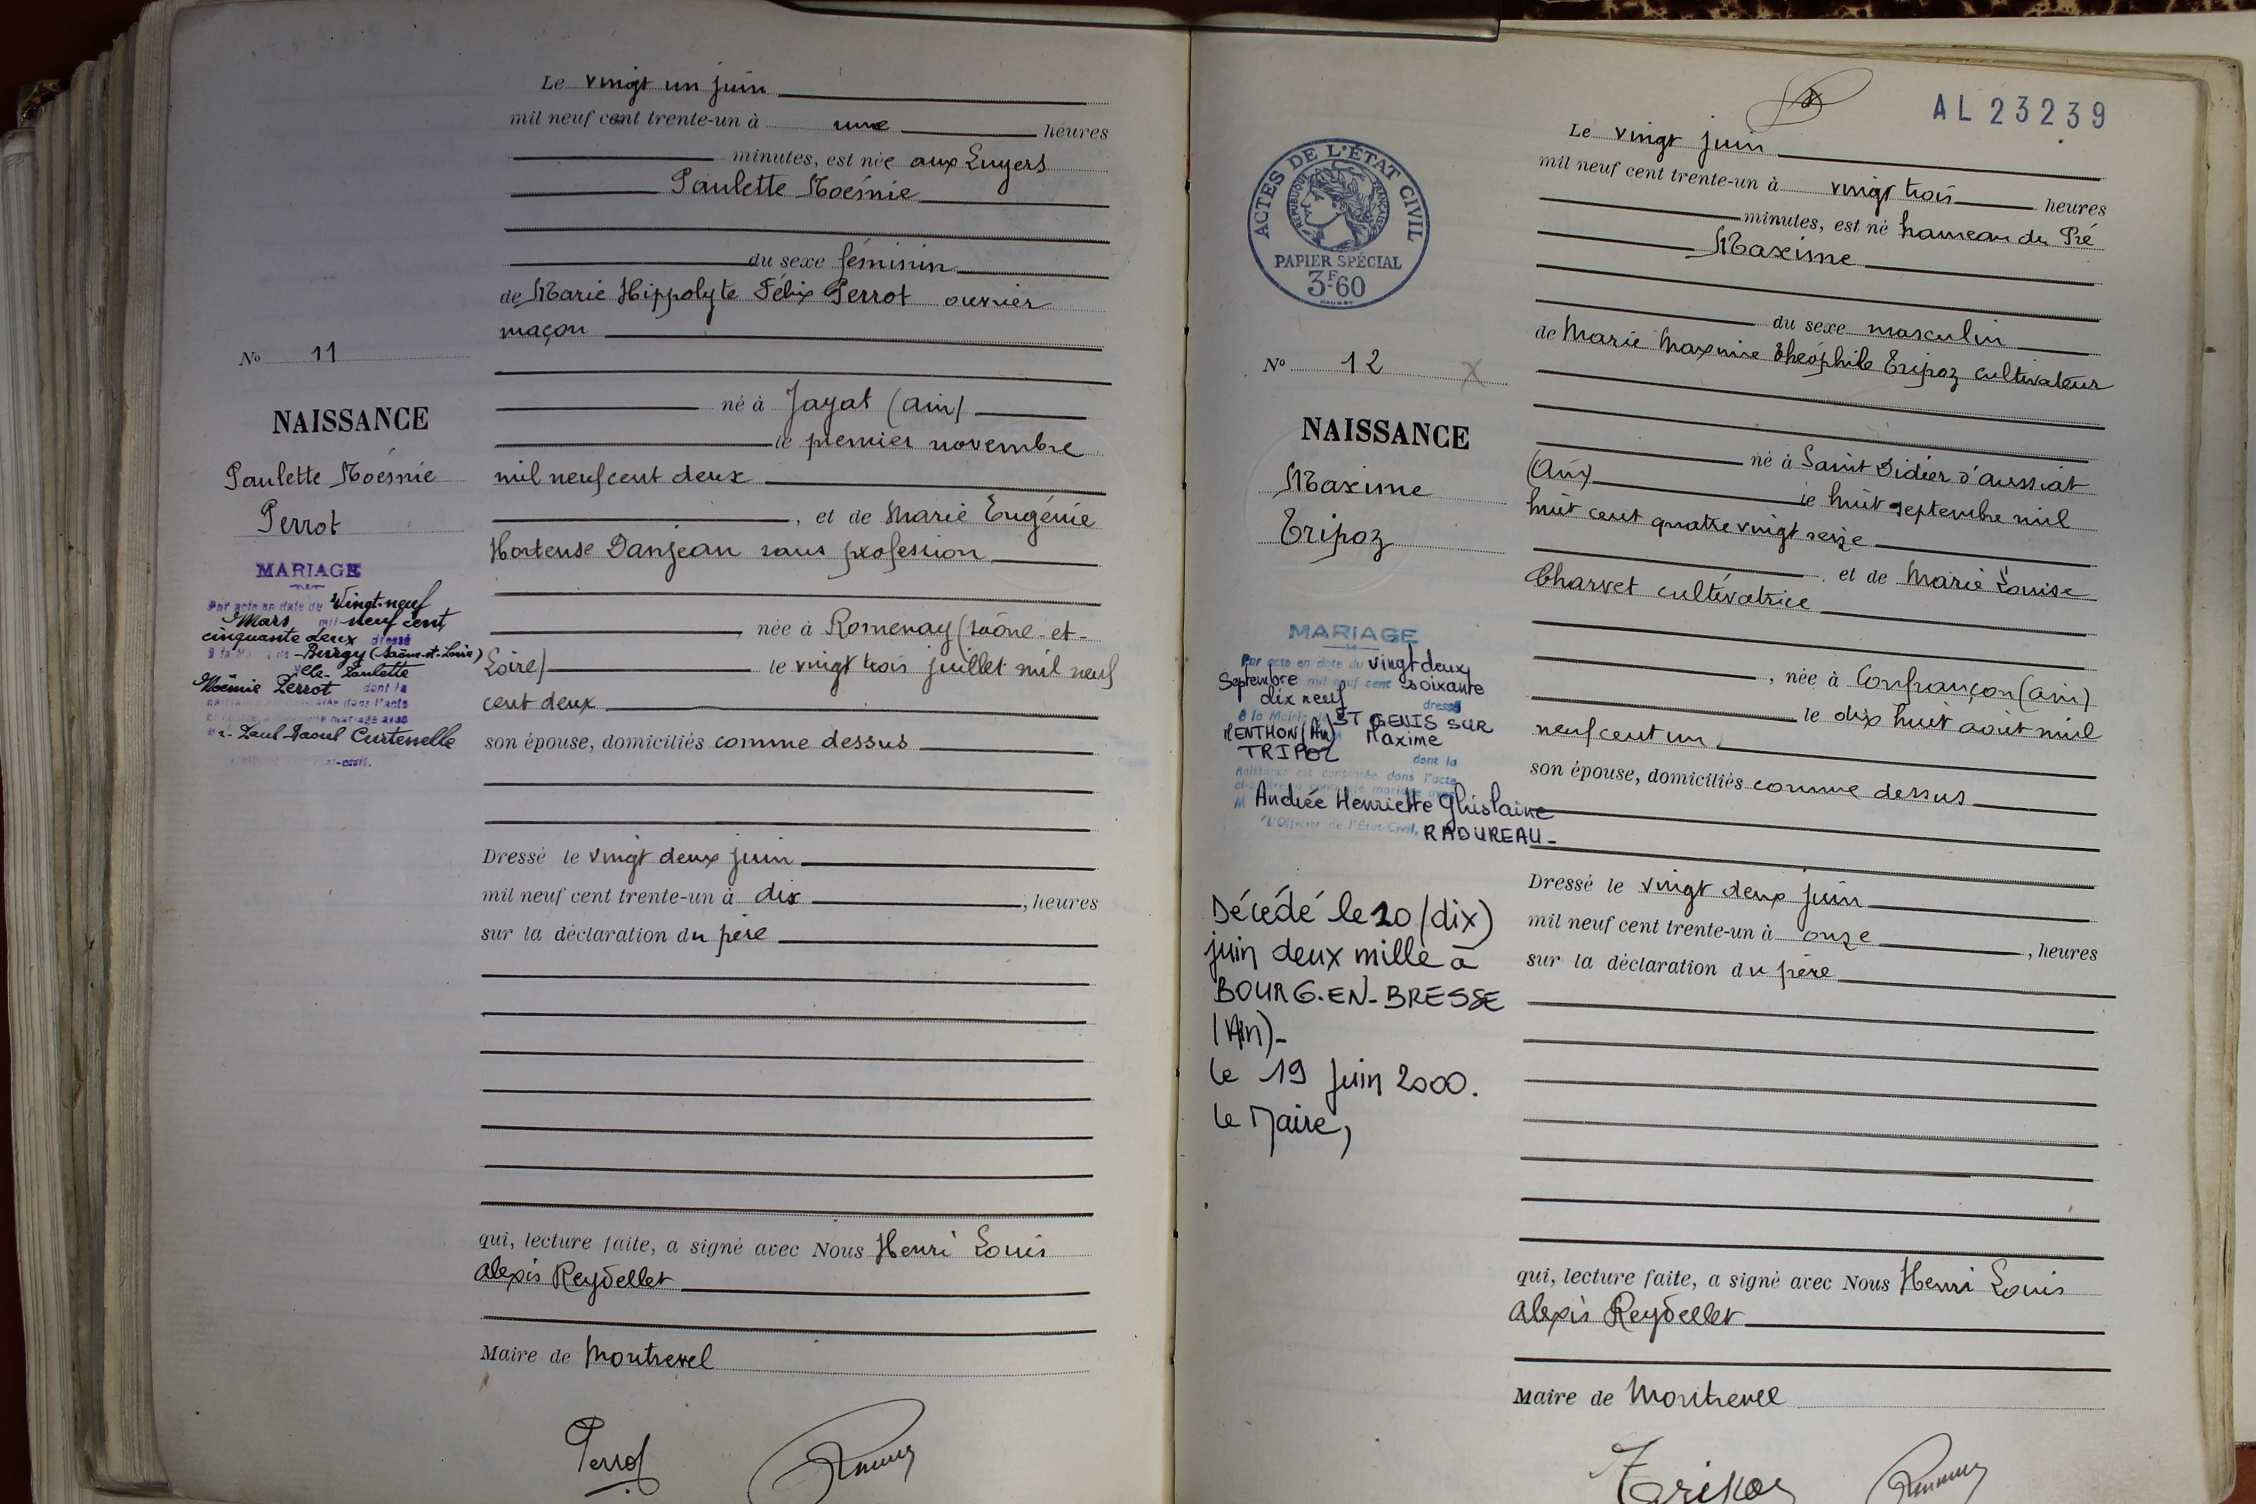 Le vingt un juin
mil neuf cent trente-un à une heures
minutes, est née aux Luyers
Paulette Noémie
du sexe féminin
de Marie Hippolyte Félix Perrot ouvrier
maçon
né à Jayat (Ain)
le premier novembre
mil neuf cent deux
, et de Marie Eugénie
Hortense Danjean sans profession
née à Romenay (Saône-et-
Loire) le vingt trois juillet mil neuf
cent deux
son épouse, domiciliés comme dessus
Dressé le vingt deux juin
mil neuf cent trente-un à dix , heures
sur la déclaration du père
qui, lecture faite, a signé avec Nous Henri Louis
Alexis Reydellet
Maire de Montrevel
Perrot
No 11
NAISSANCE
Paulette Noémie
Perrot
MARIAGE
Par acte en date du Vingt-neuf
Mars mil neuf cent
cinquante deux dressé
à la Mairie de Burgy (Saône-et-Loire)
Elle- Paulette
Noémie Perrot dont la
naissance est constatée dans l'acte
ci-contre a contracté mariage avec
Paul Raoul Curtenelle
AL 23239
ACTES DE L'ÉTAT CIVIL
RÉPUBLIQUE FRANÇAISE
PAPIER SPÉCIAL
3F60
No 12 X
NAISSANCE
Maxime
Tripoz
MARIAGE
Par acte en date du vingt deux
Septembre mil neuf cent soixante
dix neuf dressé
à la Mairie de ST GENIS SUR
MENTHON (Ain) M Maxime
TRIPOZ dont la
naissance est constatée dans l'acte
ci-contre a contracté mariage avec
M Andrée Henriette Ghislaine
L'Officier de l'État Civil, RADUREAU-
Décédé le 10 (dix)
juin deux mille à
BOURG-EN-BRESSE
(Ain)-
le 19 Juin 2000.
Le Maire,
Le vingt juin
mil neuf cent trente-un à vingt trois heures
minutes, est né hameau du Pré
Maxime
du sexe masculin
de Marie Maxime Théophile Tripoz cultivateur
né à Saint Didier d'Aussiat
(Ain) le huit septembre mil
huit cent quatre vingt seize
et de Marie Louise
Charvet cultivatrice
, née à Confrançon (Ain)
le dix huit août mil
neuf cent un
son épouse, domiciliés comme dessus
Dressé le vingt deux juin
mil neuf cent trente-un à onze , heures
sur la déclaration du père
qui, lecture faite, a signé avec Nous Henri Louis
Alexis Reydellet
Maire de Montrevel
Tripoz